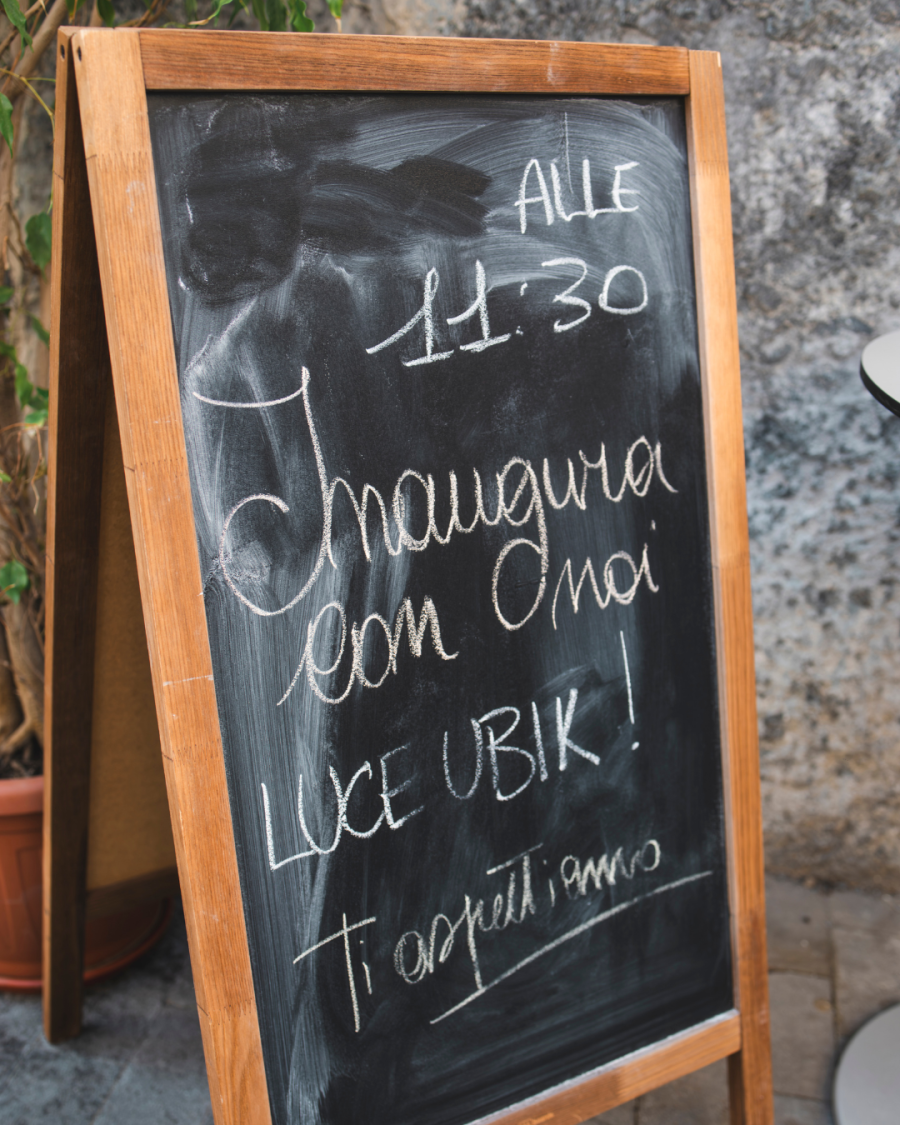 ALLE
11:30
Inaugura
con noi
LUCE UBIK!
Ti aspettiamo